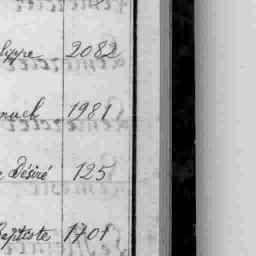 lippe 2082
nuel 1981
Désiré 125
Baptiste 1701